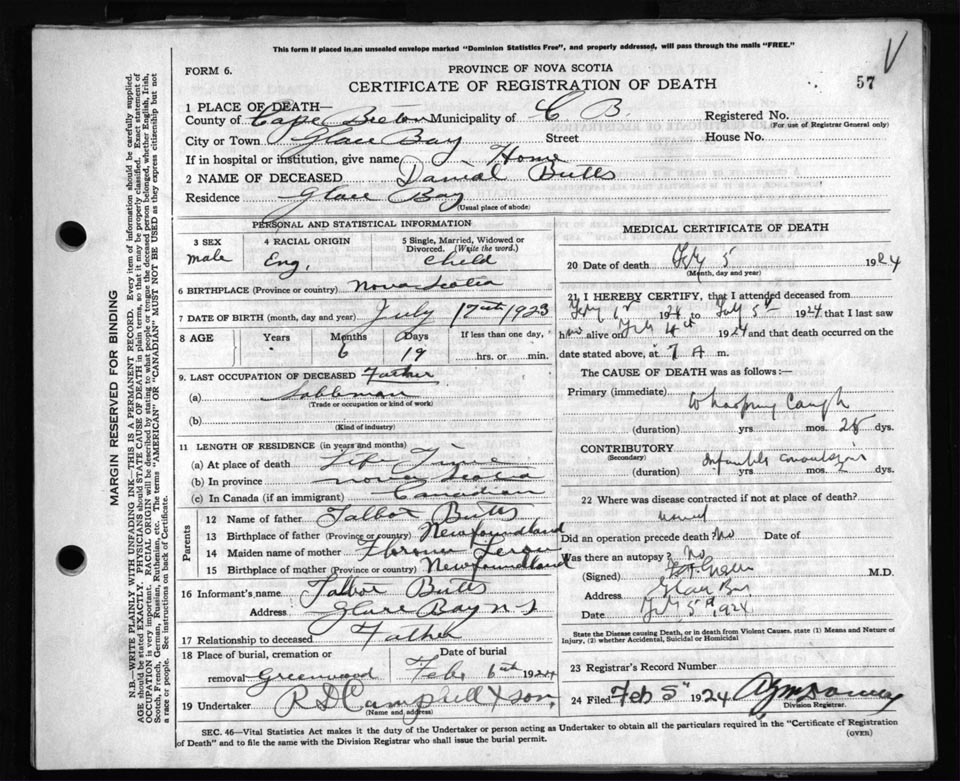 This form if placed in an unsealed envelope marked "Dominion Statistics Free", and properly addressed, will pass through the mails "FREE."
V
FORM 6.
PROVINCE OF NOVA SCOTIA
CERTIFICATE OF REGISTRATION OF DEATH
57
1 PLACE OF DEATH—
County of Cape Breton Municipality of C B. Registered No.
(For use of Registrar General only)
City or Town Glace Bay Street House No.
If in hospital or institution, give name Home
2 NAME OF DECEASED Danial Butts
Residence Glace Bay
(Usual place of abode)
PERSONAL AND STATISTICAL INFORMATION
3 SEX 4 RACIAL ORIGIN 5 Single, Married, Widowed or Divorced. (Write the word.)
male Eng. Child
6 BIRTHPLACE (Province or country) Nova Scotia
7 DATE OF BIRTH (month, day and year) July 17th 1923
8 AGE Years Months Days If less than one day,
6 19 hrs. or min.
9. LAST OCCUPATION OF DECEASED Father
(a)
(Trade or occupation or kind of work)
(b)
(Kind of industry)
11 LENGTH OF RESIDENCE (in years and months)
(a) At place of death Life Time
(b) In province Nova Scotia
(c) In Canada (if an immigrant) Canadian
Parents
12 Name of father Talbot Butts
13 Birthplace of father (Province or country) Newfoundland
14 Maiden name of mother Florence
15 Birthplace of mother (Province or country) Newfoundland
16 Informant's name Talbot Butts
Address Glace Bay N S
17 Relationship to deceased Father
18 Place of burial, cremation or Date of burial
removal Greenwood Feb 6th 1924
19 Undertaker R D Campbell & son,
(Name and address)
MEDICAL CERTIFICATE OF DEATH
20 Date of death Feby 5 1924
(Month, day and year)
21 I HEREBY CERTIFY, that I attended deceased from
Feby 1st 1924 to Feby 5th 1924 that I last saw
him alive on Feb 4th 1924 and that death occurred on the
date stated above, at 7 A m.
The CAUSE OF DEATH was as follows:—
Primary (immediate) Whooping Cough
(duration) yrs. mos. 28 dys.
CONTRIBUTORY
(Secondary) Infantile convulsions
(duration) yrs. mos. dys.
22 Where was disease contracted if not at place of death?
Did an operation precede death? No Date of
Was there an autopsy? No
(Signed) M.D.
Address Glace Bay
Date Feb 5th 1924
State the Disease causing Death, or in death from Violent Causes. state (1) Means and Nature of
Injury, (2) whether Accidental, Suicidal or Homicidal
23 Registrar's Record Number
24 Filed Feb 5th 1924
Division Registrar.
SEC. 46—Vital Statistics Act makes it the duty of the Undertaker or person acting as Undertaker to obtain all the particulars required in the "Certificate of Registration
of Death" and to file the same with the Division Registrar who shall issue the burial permit.
(OVER)
MARGIN RESERVED FOR BINDING
N.B.—WRITE PLAINLY WITH UNFADING INK—THIS IS A PERMANENT RECORD. Every item of information should be carefully supplied.
AGE should be stated EXACTLY. PHYSICIANS should STATE CAUSE OF DEATH in plain terms, so that it may be properly classified. Exact statement of
OCCUPATION is very important. RACIAL ORIGIN will be described by stating to what people or tongue the deceased person belonged, whether English, Irish,
Scotch, French, German, Russian, Ruthenian, etc. The terms "AMERICAN" OR "CANADIAN" MUST NOT BE USED as they express citizenship but not
a race or people. See instructions on back of Certificate.